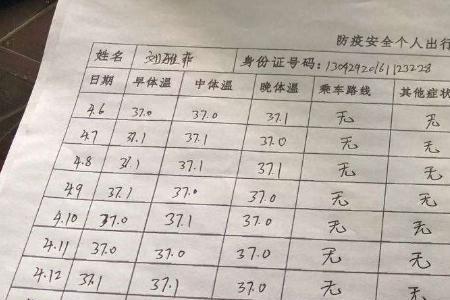 防疫安全个人出行
姓名 刘雅菲 身份证号码:
日期 早体温 中体温 晚体温 乘车路线 其他症状
4.6 37.0 37.0 37.1 无 无
4.7 37.1 37.1 37.0 无 无
4.8 37.1 37.1 37.1 无 无
4.9 37.1 37.0 37.0 无 无
4.10 37.0 37.1 37.0 无 无
4.11 37.0 37.0 37.0 无 无
4.12 37.1 37.1 37.0 无 无